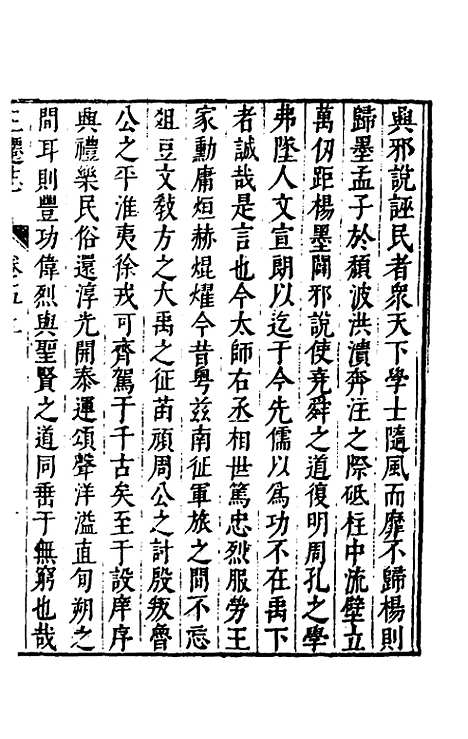 與邪說誣民者衆天下學士隨風而靡不歸楊則
歸墨孟子於頹波洪瀆奔注之際砥柱中流壁立
萬仞距楊墨闢邪說使堯舜之道復明周孔之學
弗墜人文宣朗以迄于今先儒以爲功不在禹下
者誠哉是言也今太師右丞相世篤忠烈服勞王
家勳庸烜赫焜燿今昔粤兹南征軍旅之間不忘
俎豆文敎方之大禹之征苗頑周公之討殷叛魯
公之平淮夷徐戎可齊駕于千古矣至于設庠序
興禮樂民俗還淳光開泰運頌聲洋溢直旬朔之
間耳則豐功偉烈與聖賢之道同垂于無窮也哉
三遷志 卷五上